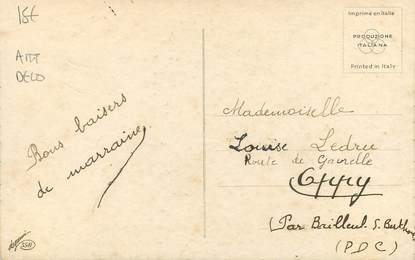 15€
ART
DECO
Bons baisers
de marraine
Imprimé en Italie
PRODUZIONE
ITALIANA
Printed in Italy
Mademoiselle
Louise Ledru
Route de Gavrelle
Oppy
(Par Bailleul S. Berthoult
(PDC)